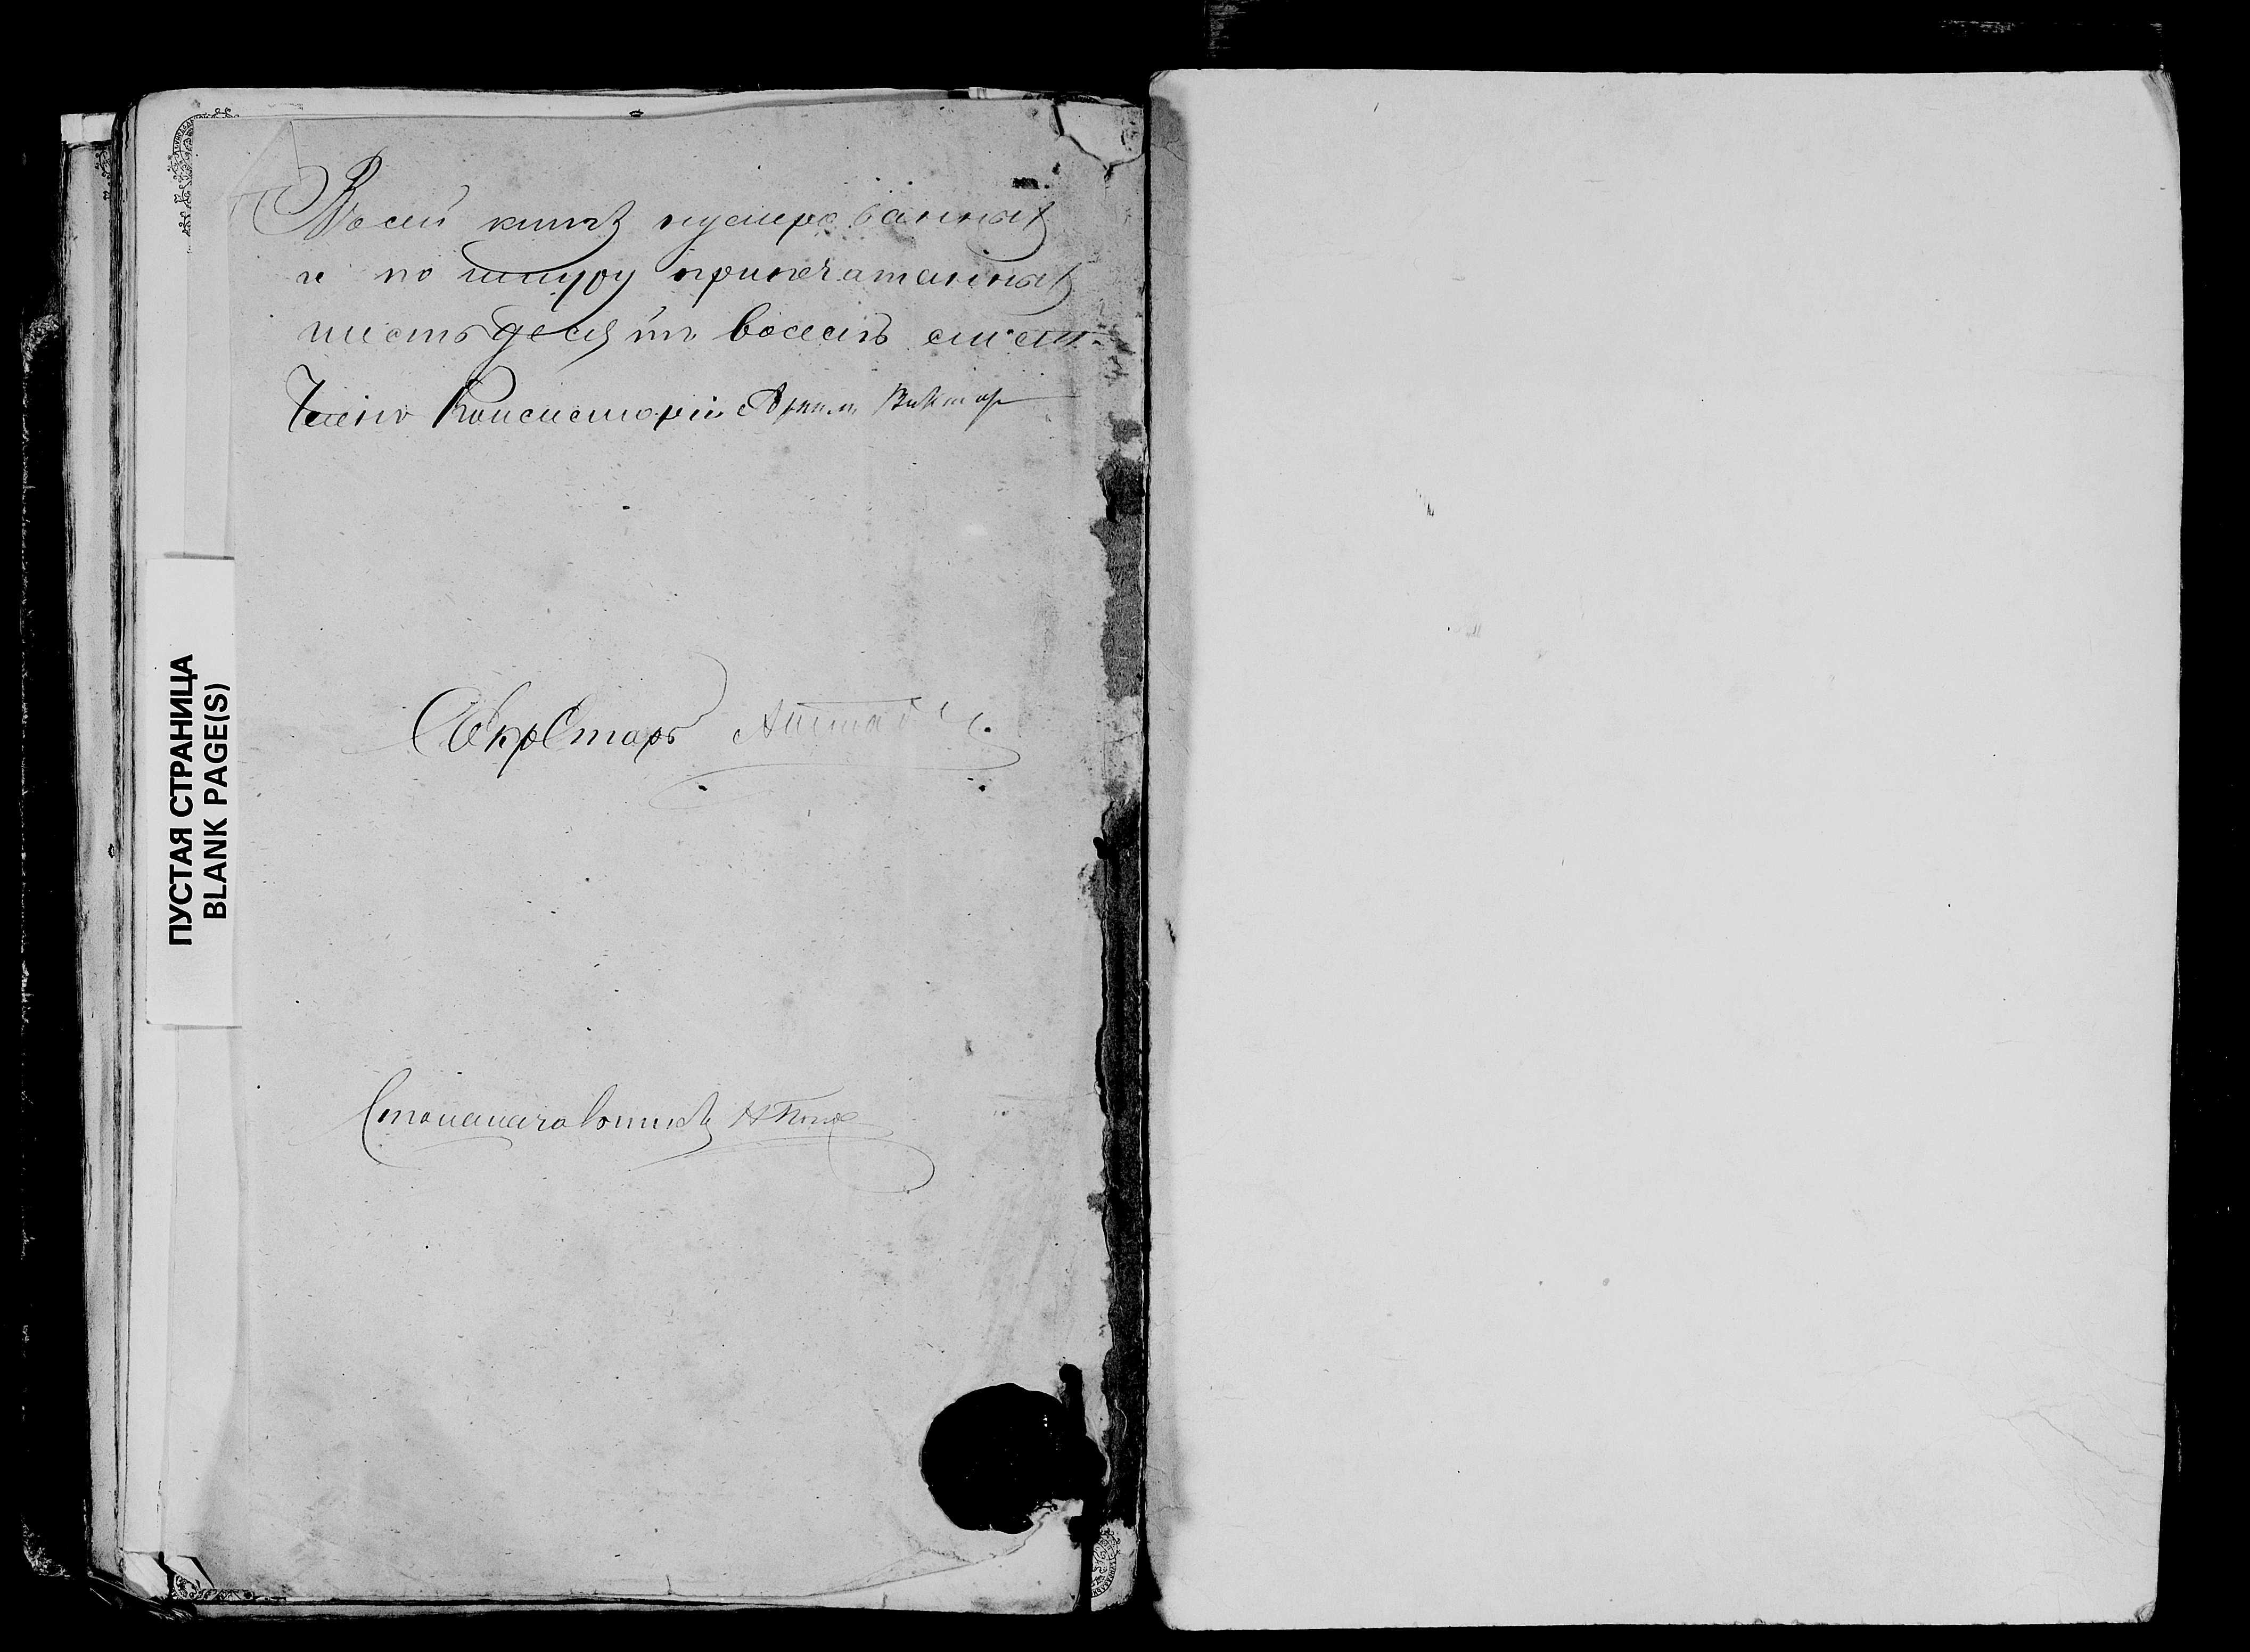 Въ сей книгѣ нумерованныхъ
и по шнуру припечатанныхъ
шестьдесятъ восемь лист.
Членъ Консисторіи Архим. Виктор
Секретарь
Столоначальникъ
ПУСТАЯ СТРАНИЦА
BLANK PAGE(S)